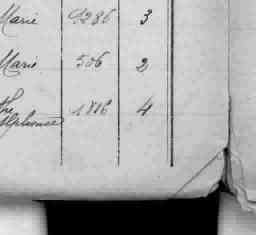 Marie 9286 3
Marie 506 2
the
Alphonse 1816 4